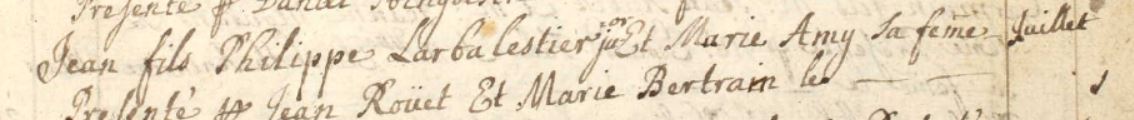 Presenté
Jean fils Philippe Larbalestier jor Et Marie Amy Sa feme Juillet
Presenté Jean Roüet Et Marie Bertram le — — 1